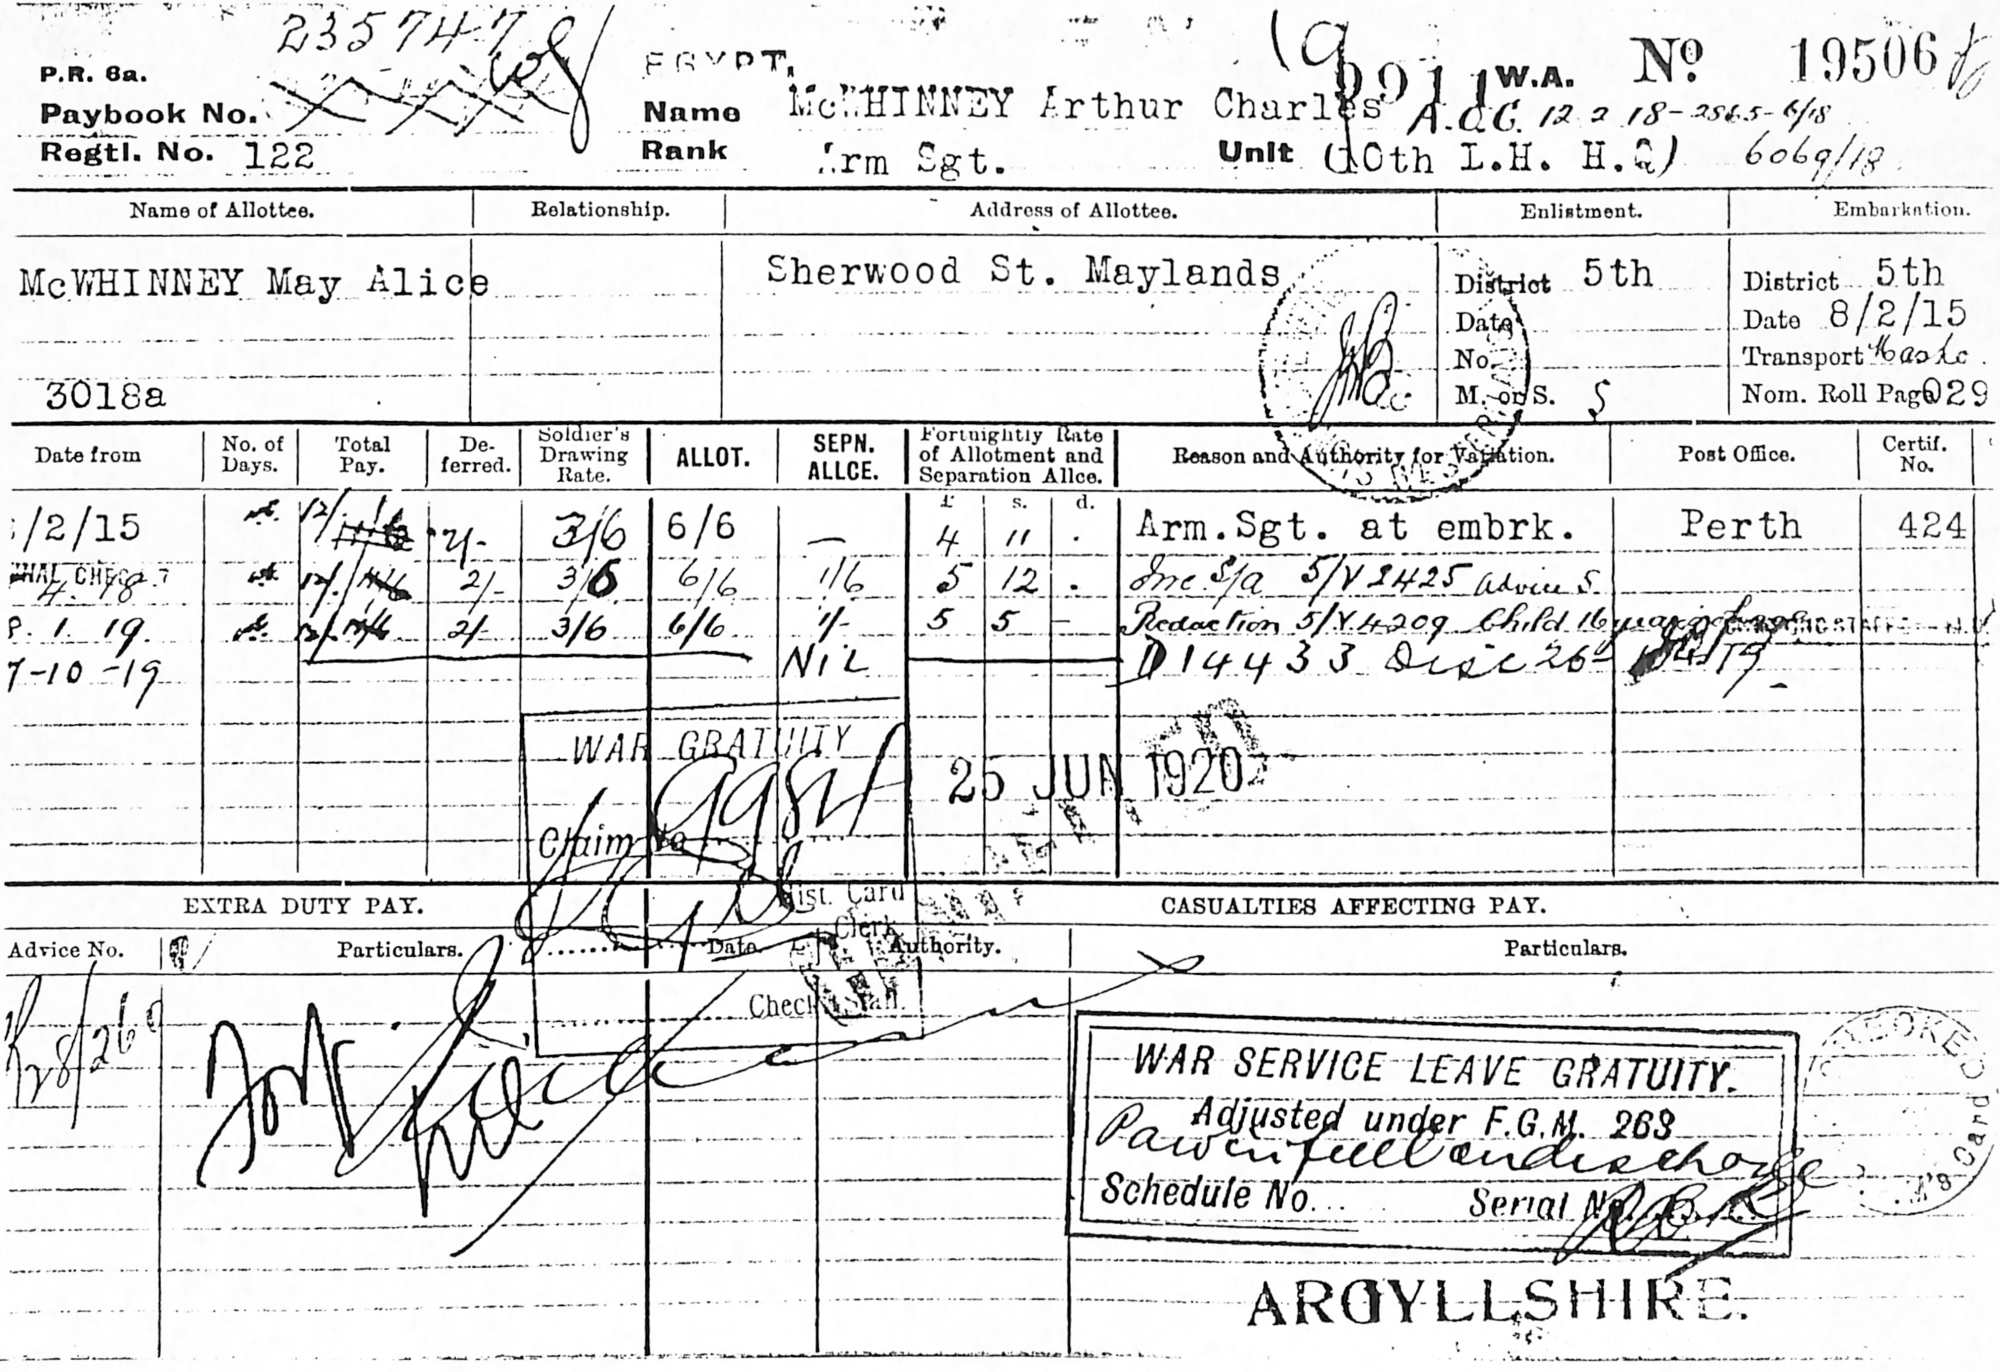 235747
P.R. 6a.
EGYPT.
W.A. No. 19506
Paybook No.
Name McWHINNEY Arthur Charles
9911
A.O.C. 12 2 18-2865-6/18
Regtl. No. 122
Rank Arm Sgt.
Unit (10th L.H. H.Q)
6069/18
Name of Allottee. Relationship. Address of Allottee. Enlistment. Embarkation.
McWHINNEY May Alice
Sherwood St. Maylands
District 5th
District 5th
Date
Date 8/2/15
No.
Transport
3018a
M. or S. S
Nom. Roll Page 029
Date from No. of Days. Total Pay. Deferred. Soldier's Drawing Rate. ALLOT. SEPN. ALLCE. Fortnightly Rate of Allotment and Separation Allce. Reason and Authority for Variation. Post Office. Certif. No.
£ s. d.
/2/15 12/ 2/- 3/6 6/6 — 4 11 . Arm.Sgt. at embrk. Perth 424
4 18 12/. 2/- 3/6 6/6 1/6 5 12 . Inc S/a 5/V2425 advice S.
1 19. 12/ 2/- 3/6 6/6 1/- 5 5 — Reduction 5/V4209 Child 16
7-10-19 NIL D14433 Disc 26
WAR GRATUITY
25 JUN 1920
Claim No
Dist. Card
Clerk
EXTRA DUTY PAY. CASUALTIES AFFECTING PAY.
Advice No. Particulars. Date. Authority. Particulars.
Check Staff.
WAR SERVICE LEAVE GRATUITY.
Adjusted under F.G.M. 263
Paid in full on discharge
Schedule No... Serial No.
ARGYLLSHIRE.